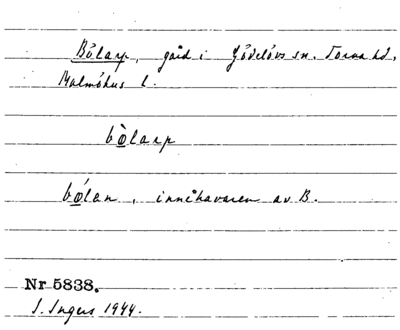 Bölarp, gård i Gödelövs sn. Torna hd,
Malmöhus l.
bo̲larp
bo̲lan, innehavaren av B.
Nr 5838.
I. Ingers 1944.